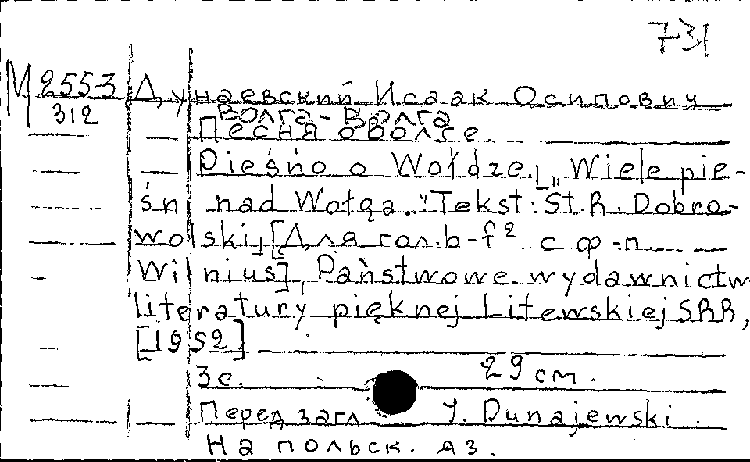 731
М 2553 Дунаевский Исаак Осипович
312 Волга-Волга
Песня о Волге.
Pieśńo o Wołdze. „Wiele pie-
śni nad Wołgą." Tekst: St. R. Dobro-
wolski, [Для гол. b-f² с ф-п.
Wilnius], Państwowe wydawnictw
literatury pięknej Litewskiej SRR,
[1952]
3 с. 29 см.
Перед загл. J. Dunajewski.
На польск. яз.